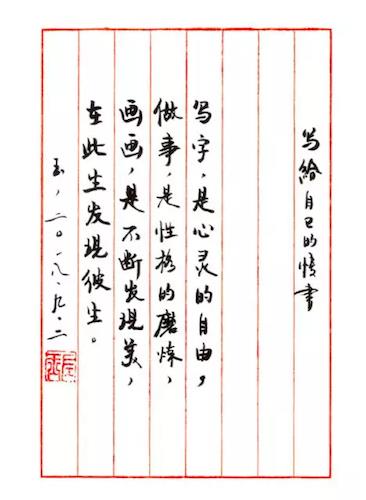 写给自己的情书
写字，是心灵的自由，
做事，是性格的磨炼，
画画，是不断发现美，
在此生发现彼生。
玉，二〇一八.九.二